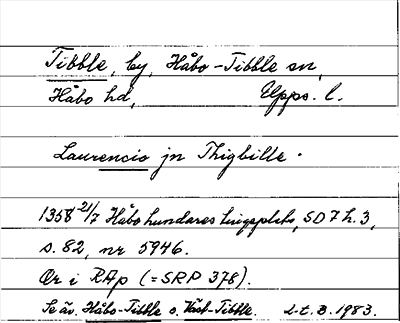 Tibble, by, Håbo-Tibble sn,
Håbo hd, Upps. l.
Laurencio jn Thigbille.
1358 21/7 Håbo hundares tingsplats, SD 7 h. 3,
s. 82, nr 5946.
Or i RAp (= SRP 378).
Se äv. Håbo-Tibble o. Väst-Tibble. L-t. B. 1983.